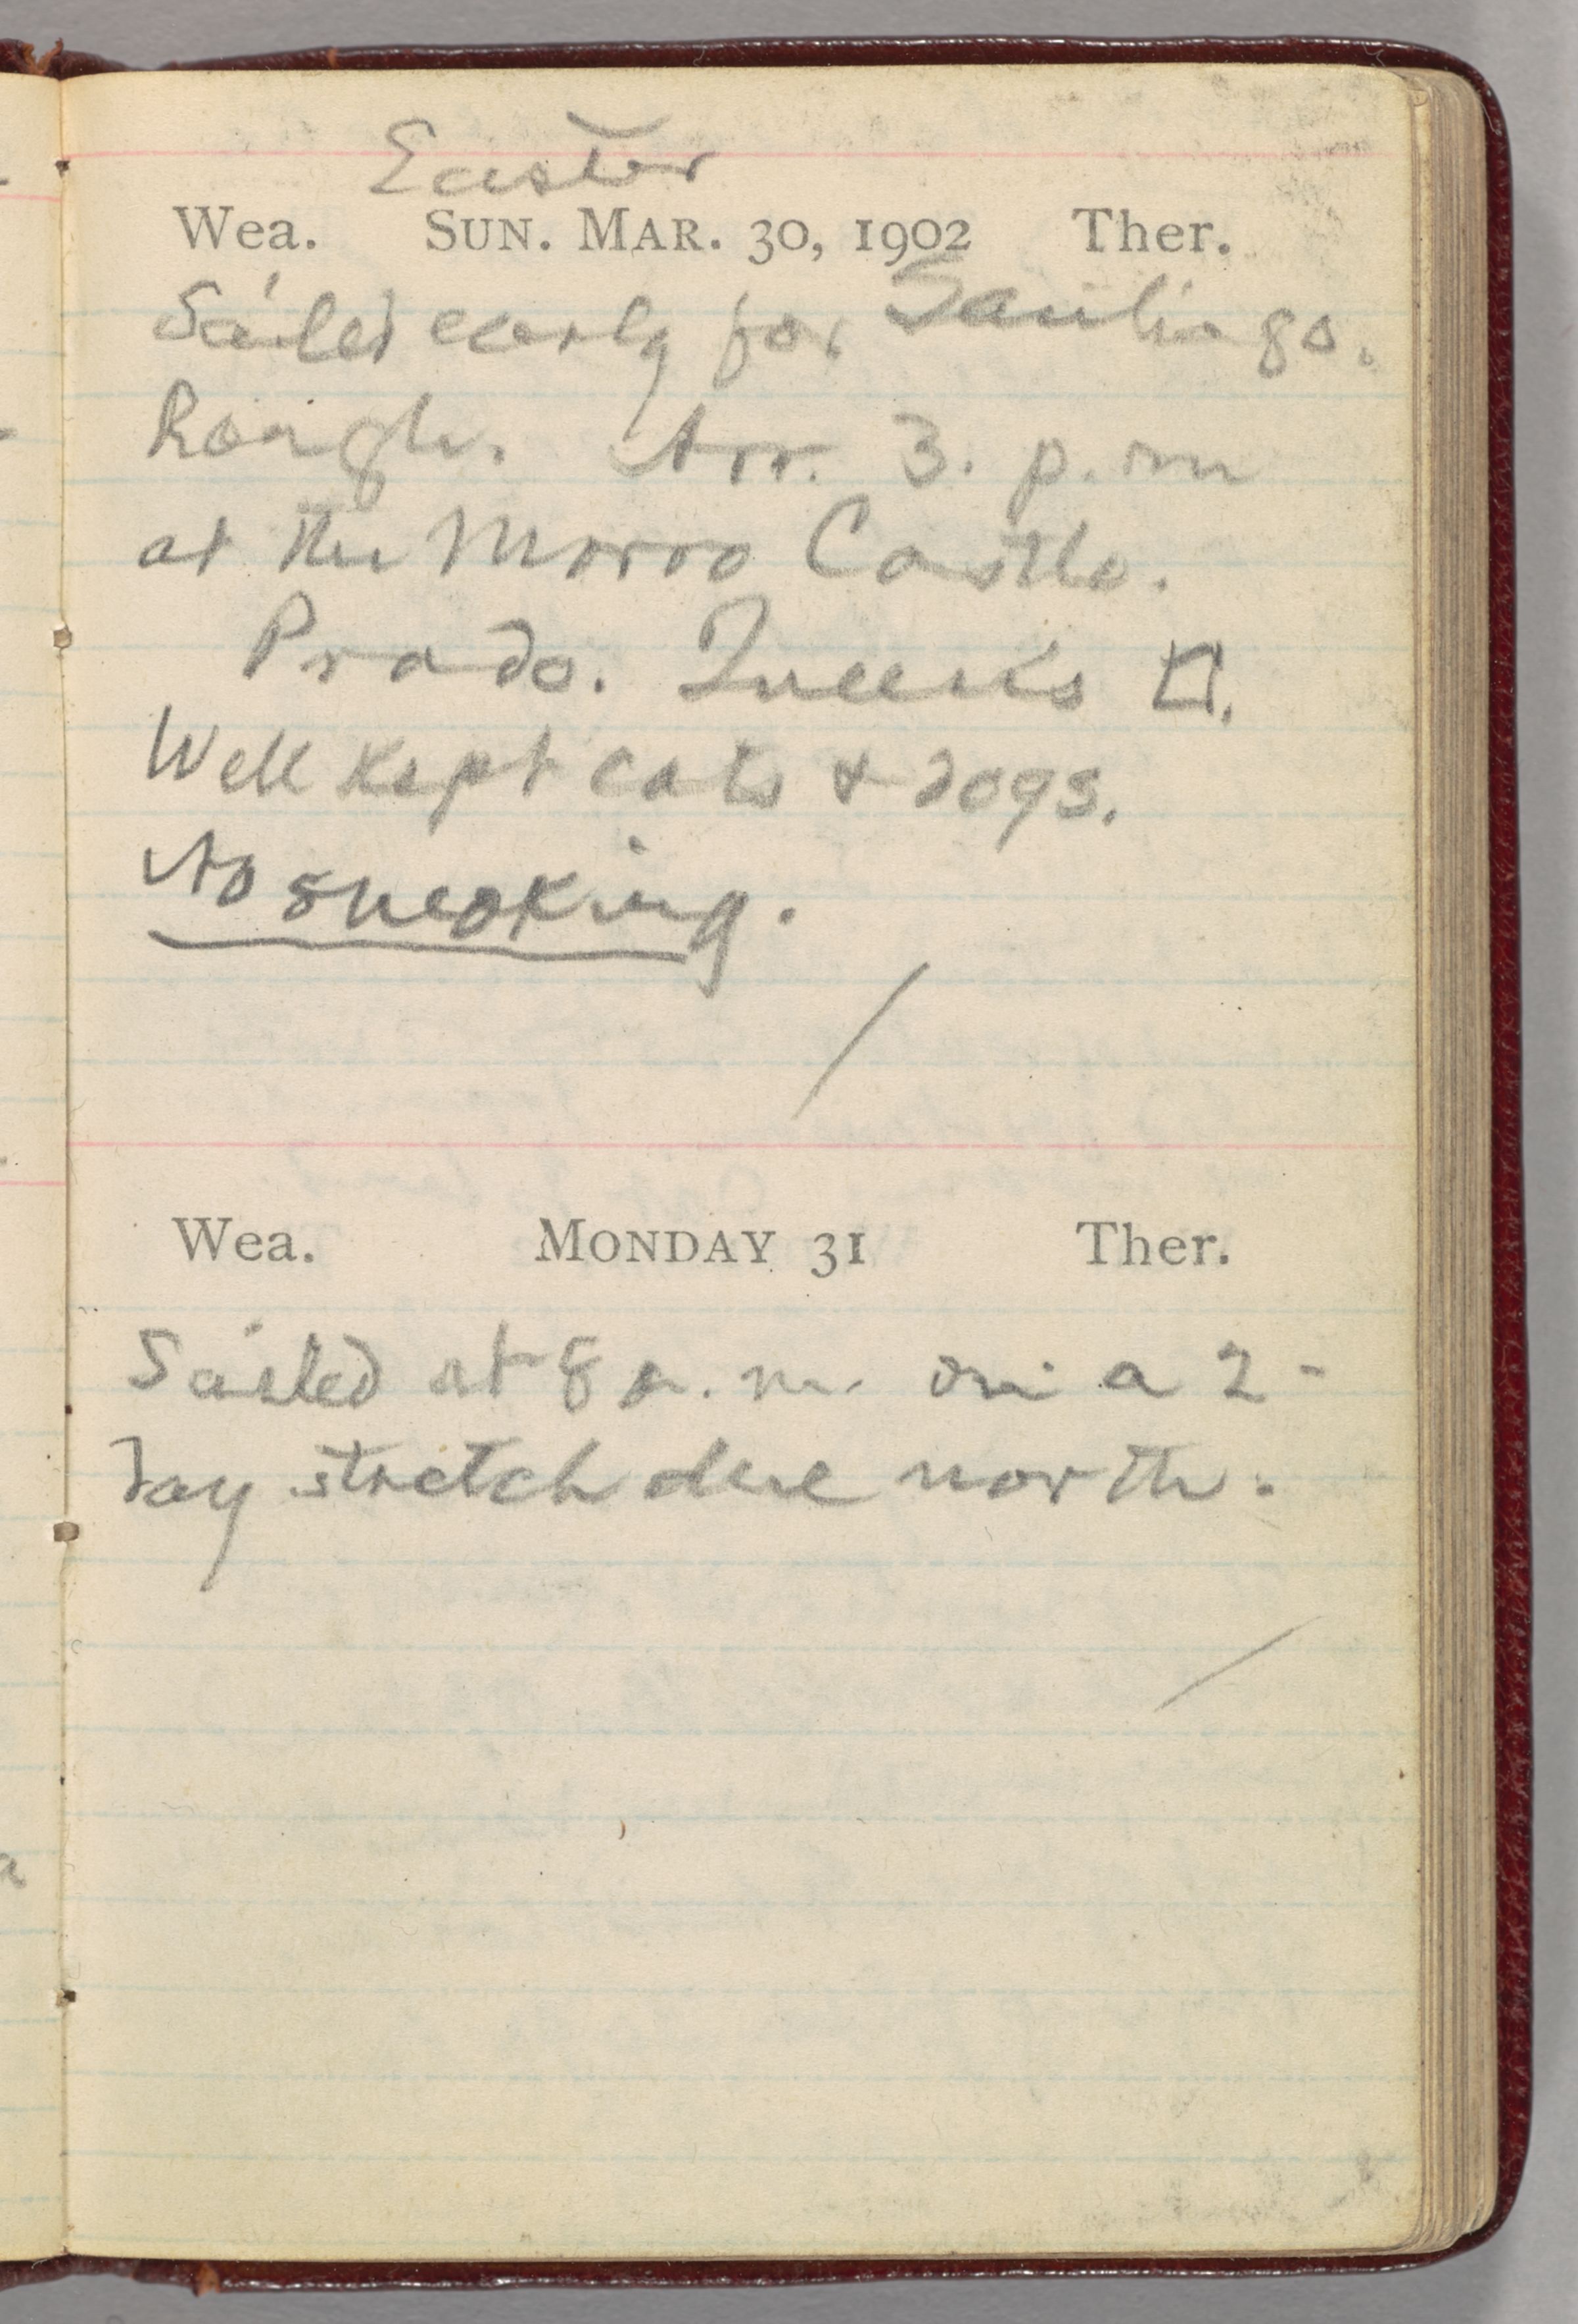 Easter
Wea. SUN. MAR. 30, 1902 Ther.
Sailed early for Santiago.
Rough. Arr. 3. p.m
at the Morro Castle.
Prado. Queen's □.
Well kept cats & dogs.
No sneaking.
/
Wea. MONDAY 31 Ther.
Sailed at 8 a.m. on a 2-
day stretch due north.
/